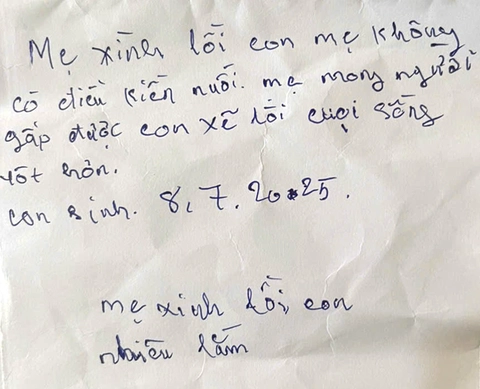 Mẹ xình lỗi con mẹ không
có điều kiến nuối. mẹ mong người
gấp được con xẽ lối cuọi sống
tốt hôn.
con sinh. 8.7.2025.
mẹ xinh lỗi, con
nhiều lắm